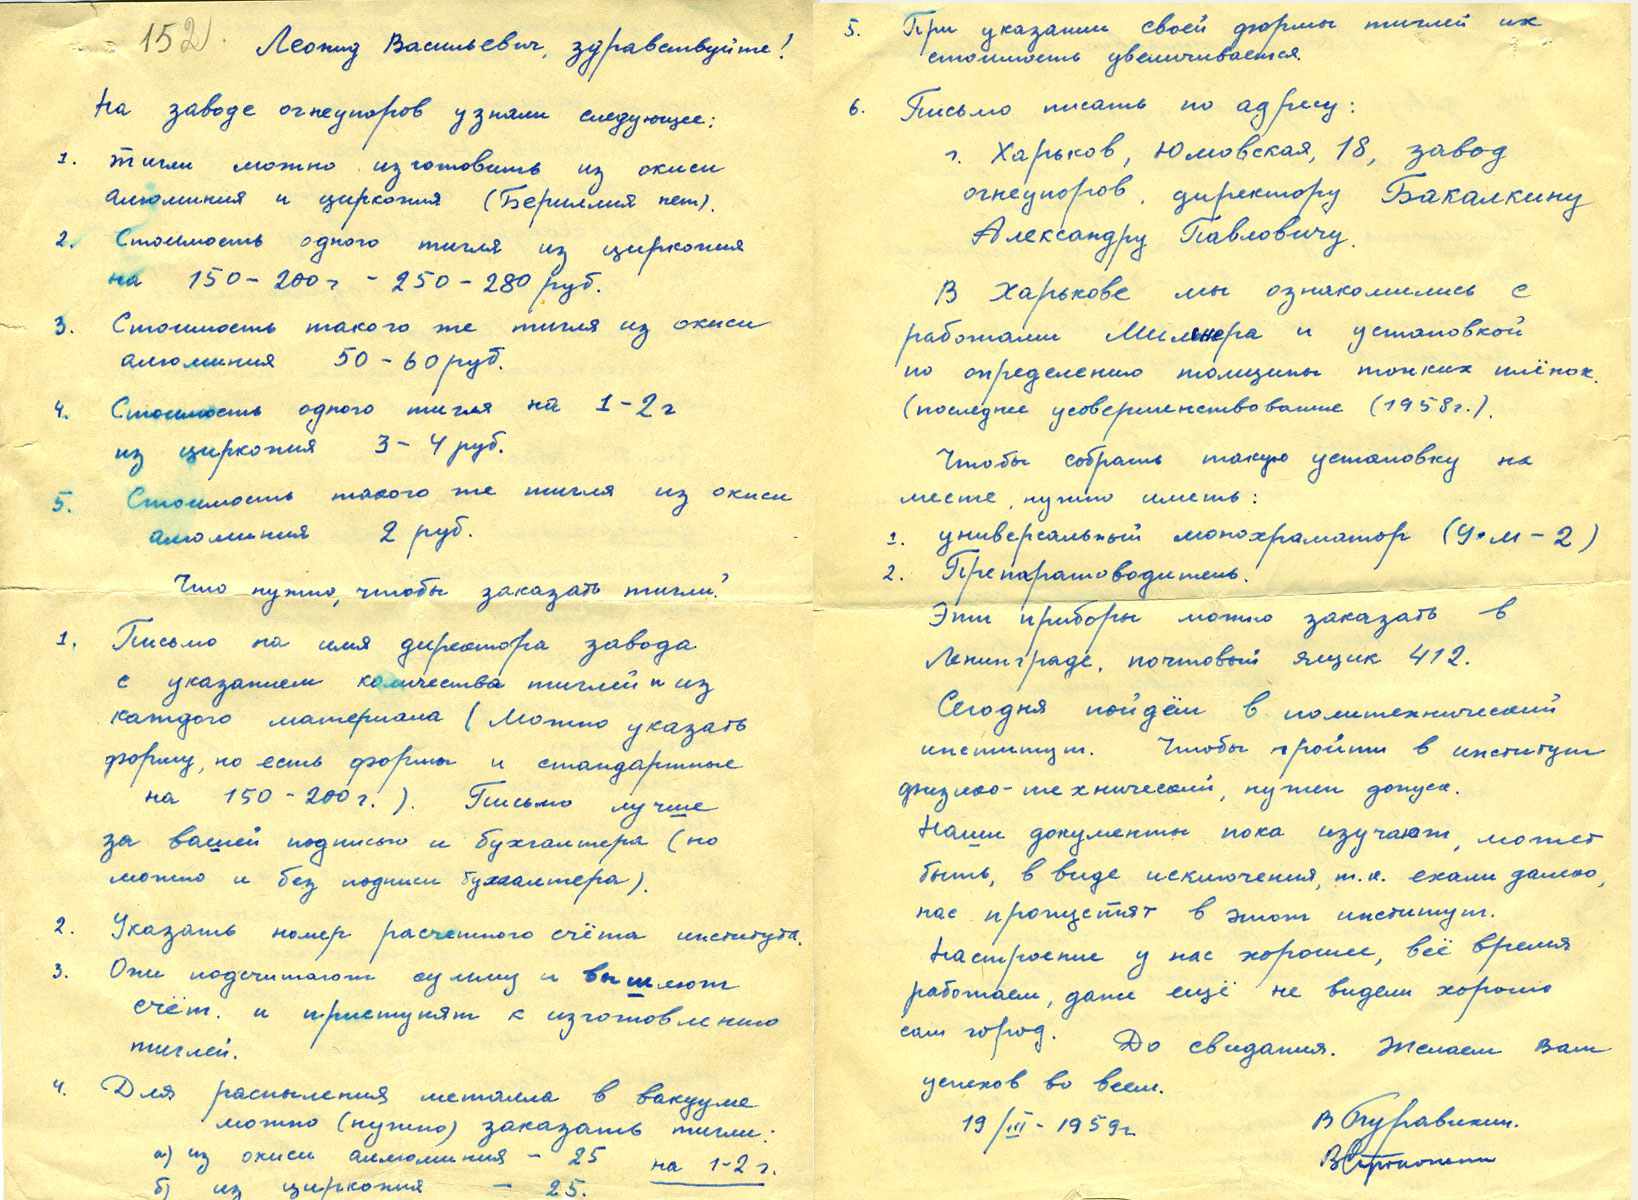 152.
Леонид Васильевич, здравствуйте!
На заводе огнеупоров узнали следующее:
1. Тигли можно изготовить из окиси
алюминия и циркония (Бериллия нет).
2. Стоимость одного тигля из циркония
на 150-200 г - 250-280 руб.
3. Стоимость такого же тигля из окиси
алюминия 50-60 руб.
4. Стоимость одного тигля на 1-2 г
из циркония 3-4 руб.
5. Стоимость такого же тигля из окиси
алюминия 2 руб.
Что нужно, чтобы заказать тигли?
1. Письмо на имя директора завода
с указанием количества тиглей и из
каждого материала (Можно указать
форму, но есть формы и стандартные
на 150-200 г.). Письмо лучше
за вашей подписью и бухгалтера (но
можно и без подписи бухгалтера).
2. Указать номер расчетного счёта института.
3. Они подсчитают сумму и вышлют
счёт. и приступят к изготовлению
тиглей.
4. Для распыления металла в вакууме
можно (нужно) заказать тигли:
а) из окиси аллюминия - 25 на 1-2 г.
б) из циркония - 25.
5. При указании своей формы тиглей их
стоимость увеличивается.
6. Письмо писать по адресу:
г. Харьков, Юмовская, 18, завод
огнеупоров, директору Бакалкину
Александру Павловичу.
В Харькове мы ознакомились с
работами и установкой
по определению толщины тонких плёнок.
(последнее усовершенствование (1958 г.).
Чтобы собрать такую установку на
месте, нужно иметь:
1. универсальный монохраматор (У.М-2)
2. Препаратоводитель.
Эти приборы можно заказать в
Ленинграде, почтовый ящик 412.
Сегодня пойдём в политехнический
институт. Чтобы пройти в институт
физико-технический, нужен допуск.
Наши документы пока изучают, может
быть, в виде исключения, т.к. ехали далеко,
нас пропустят в этот институт.
Настроение у нас хорошее, всё время
работаем, даже ещё не видели хорошо
сам город. До свидания. Желаем Вам
успехов во всем.
19/III-1959 г